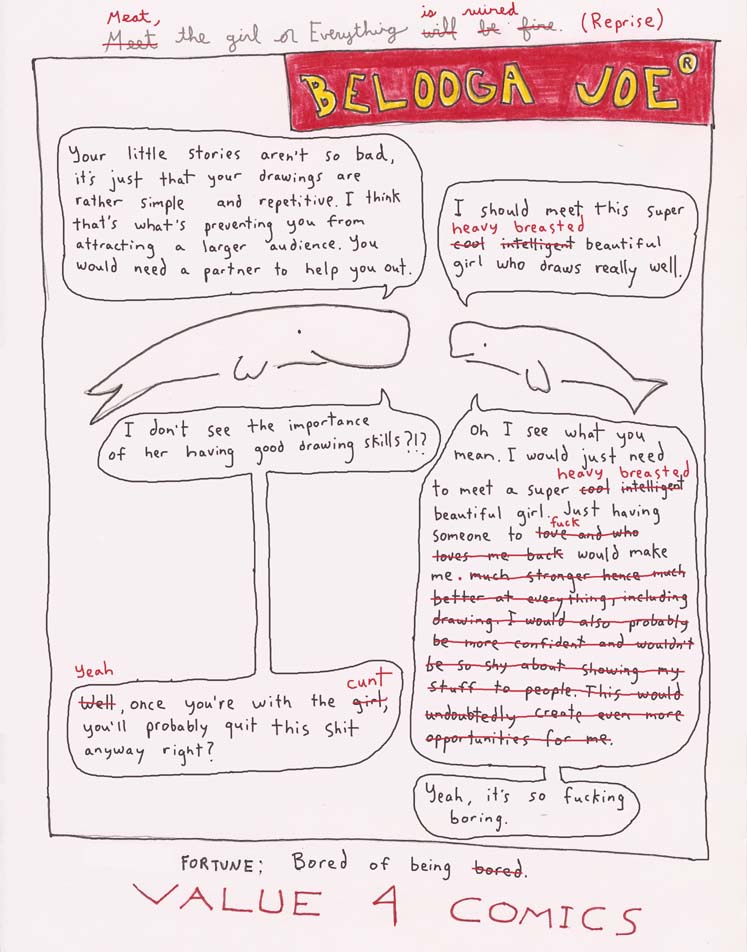 Meat, is ruined
Meet the girl or Everything will be fine. (Reprise)
BELOOGA JOE®
Your little stories aren't so bad,
it's just that your drawings are
rather simple and repetitive. I think
that's what's preventing you from
attracting a larger audience. You
would need a partner to help you out.
I should meet this super
heavy breasted
cool intelligent beautiful
girl who draws really well.
I don't see the importance
of her having good drawing skills?!?
Oh I see what you
mean. I would just need
heavy breasted
to meet a super cool intelligent
beautiful girl. Just having
fuck
someone to love and who
loves me back would make
me. much stronger hence much
better at everything, including
drawing. I would also probably
be more confident and wouldn't
be so shy about showing my
stuff to people. This would
undoubtedly create even more
opportunities for me.
Yeah cunt
Well, once you're with the girl,
you'll probably quit this shit
anyway right?
Yeah, it's so fucking
boring.
FORTUNE: Bored of being bored.
VALUE 4 COMICS